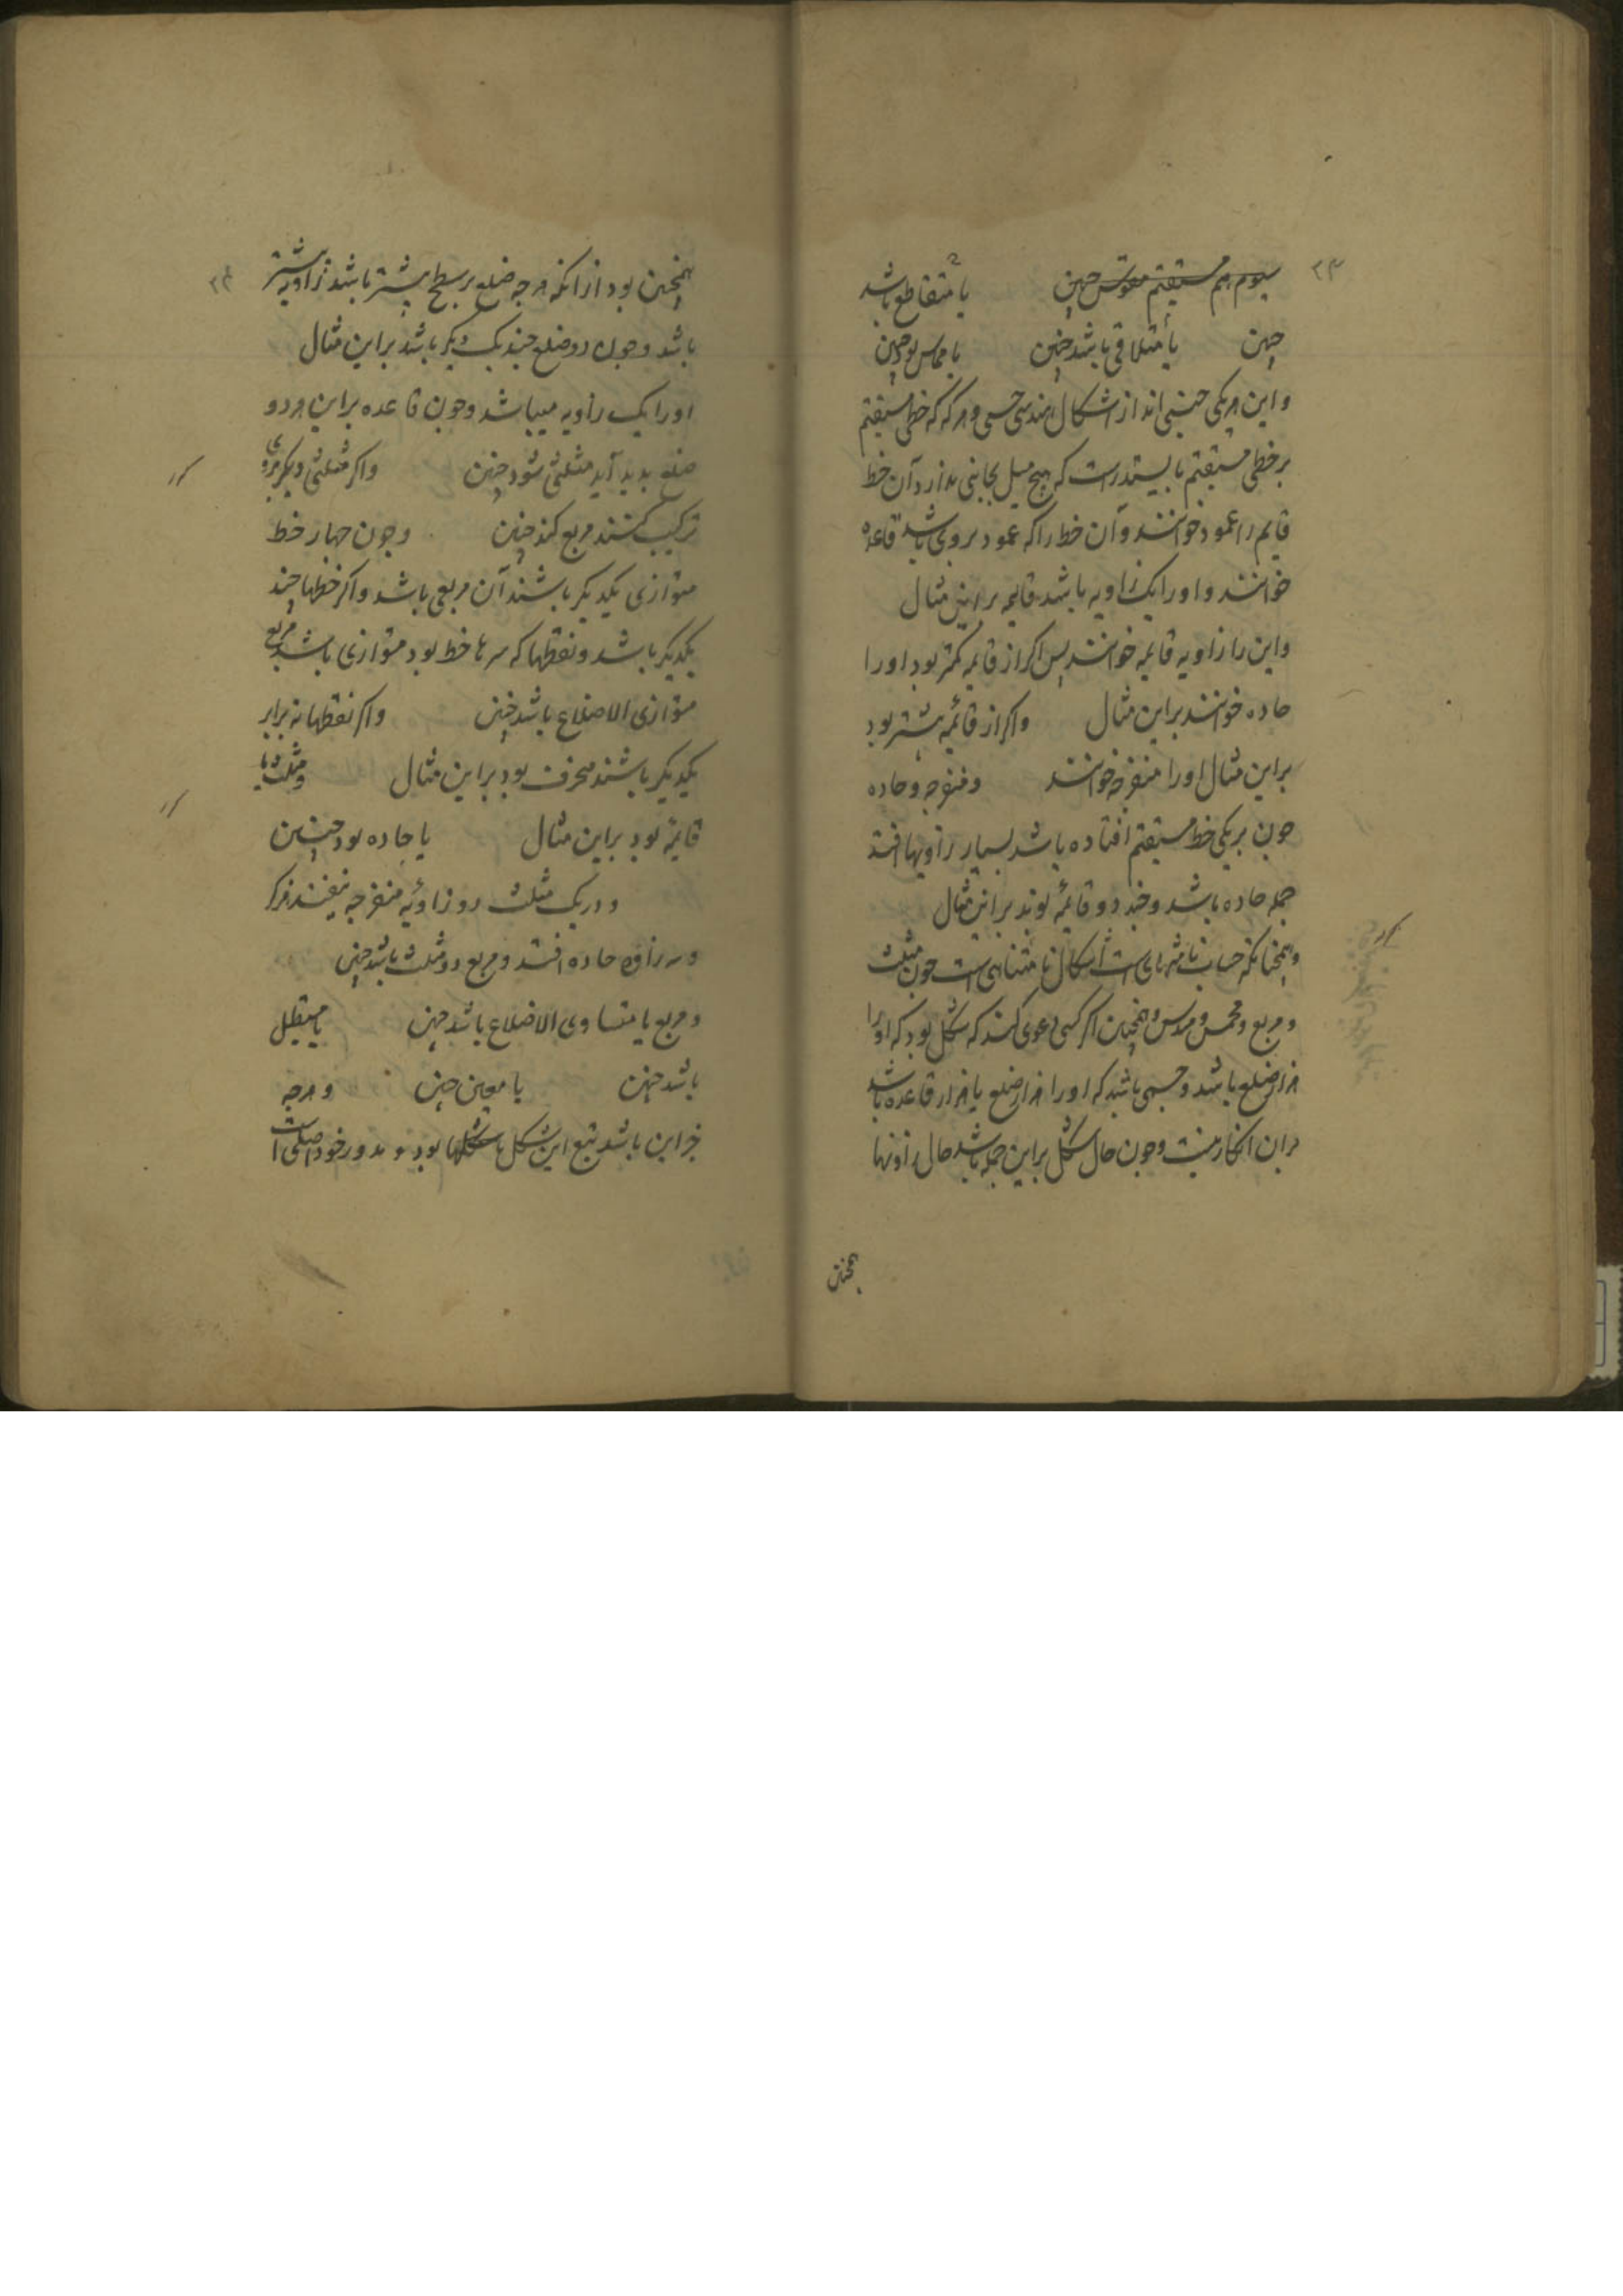 ۲۳
سیوم هم مستقیم مقوس چنین یا متقاطع باشد
چنین یا متلاقی باشد چنین یا مماس بود چنین
و این هر یکی جنسی اند از اشکال هندسی حسی و هرگه که خط مستقیم
بر خطی مستقیم بایستد راست که هیچ میل بجانبی ندارد آن خط
قایم را عمود خوانند و آن خط را که عمود بر وی باشد قاعده
خوانند و او را یک زاویه باشد قایمه بر این مثال
و این را زاویه قایمه خوانند پس اگر از قایمه کمتر بود او را
حاده خوانند براین مثال و اکر از قائمه بیشتر بود
براین مثال او را منفرجه خوانند و منفرجه و حاده
چون بر یکی خط مستقیم افتاده باشد بسیار زاویها افتد
جمله حاده باشد و چند دو قائمه بوند براین مثال
و همچنانکه حساب نامتناهی است اشکال نامتناهی است چون مثلث
و مربع و مخمس و مسدس و همچنین اکر کسی دعوی کند که شکل بود که او را
هزار ضلع باشد و جسمی باشد که او را هزار ضلع یا هزار قاعده باشد
بران انکار نیست و چون حال شکل براین جمله باشد حال زاویها
همچنین
۲۴
همچنین بود از آنکه هر چه ضلع بر سطح بیشتر باشد زاویه بیشتر
باشد و چون دو ضلع چند یکدیگر باشد براین مثال
او را یک زاویه میباشد و چون قاعده براین هر دو
ضلع پدید آید مثلثی شود چنین و اکر مثلثی دیگر بروی
ترکیب کنند مربع کند چنین و چون چهار خط
متوازی یکدیکر باشند آن مربعی باشد و اکر خطها چند
یکدیکر باشد و نقطها که سرها خط بود متوازی باشد مربع
متوازی الاضلاع باشد چنین و اکر نقطها نه برابر
یکدیکر باشند منحرف بود براین مثال و مثلث یا
قایمه بود براین مثال یا حاده بود چنین
و در یک مثلث دو زاویه منفرجه نیفتد مگر
و سه زاویه حاده افتد و مربع دو مثلث باشد چنین
و مربع یا متساوی الاضلاع باشد چنین یا مستطیل
باشد چنین یا معین چنین و هرچه
جز این باشد تبع این شکل یا شکلها بود و مدور خود اصلی است